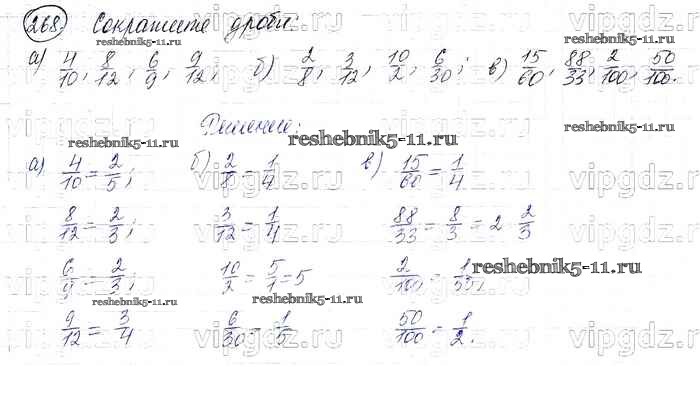 268. Сократите дроби:
а) 4/10, 8/12, 6/9, 9/12; б) 2/8, 3/12, 10/2, 6/30; в) 15/60, 88/33, 2/100, 50/100.
Решение:
а) 4/10 = 2/5; б) 2/8 = 1/4 в) 15/60 = 1/4
8/12 = 2/3; 3/12 = 1/4 88/33 = 8/3 = 2 2/3
6/9 = 2/3; 10/2 = 5/1 = 5 2/100 =
9/12 = 3/4 6/30 = 1/5 50/100 = 1/2.
reshebnik5-11.ru
vipgdz.ru